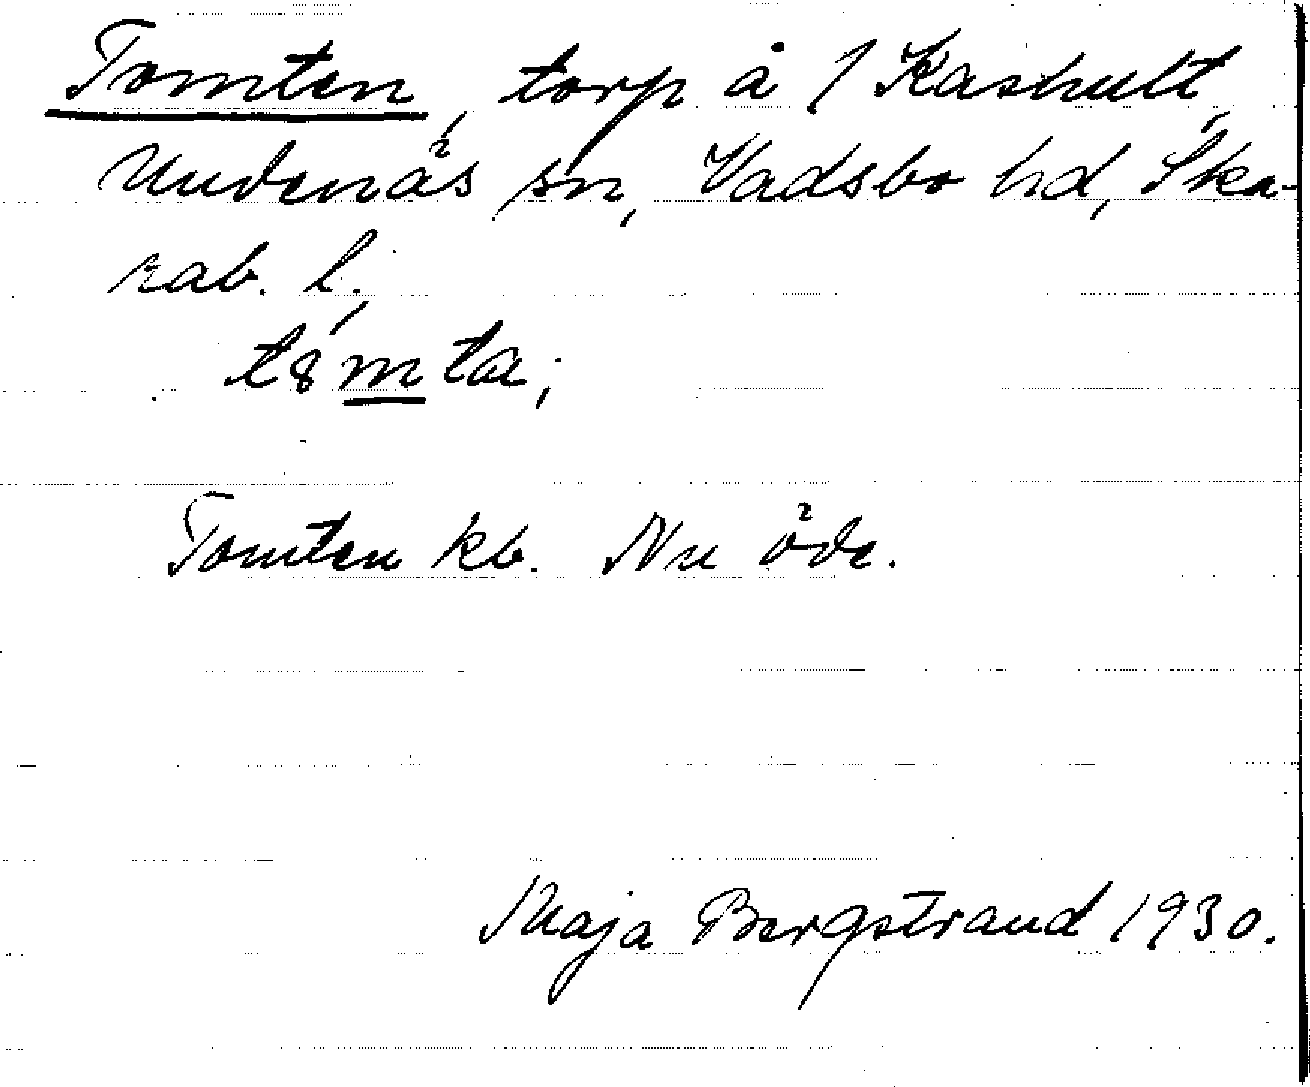 Tomten, torp å 1 Kashult,
Undenäs sn, Vadsbo hd, Ska-
rab. l.
t8mta;
Tomten kb. Nu öde.
Maja Bergstrand 1930.